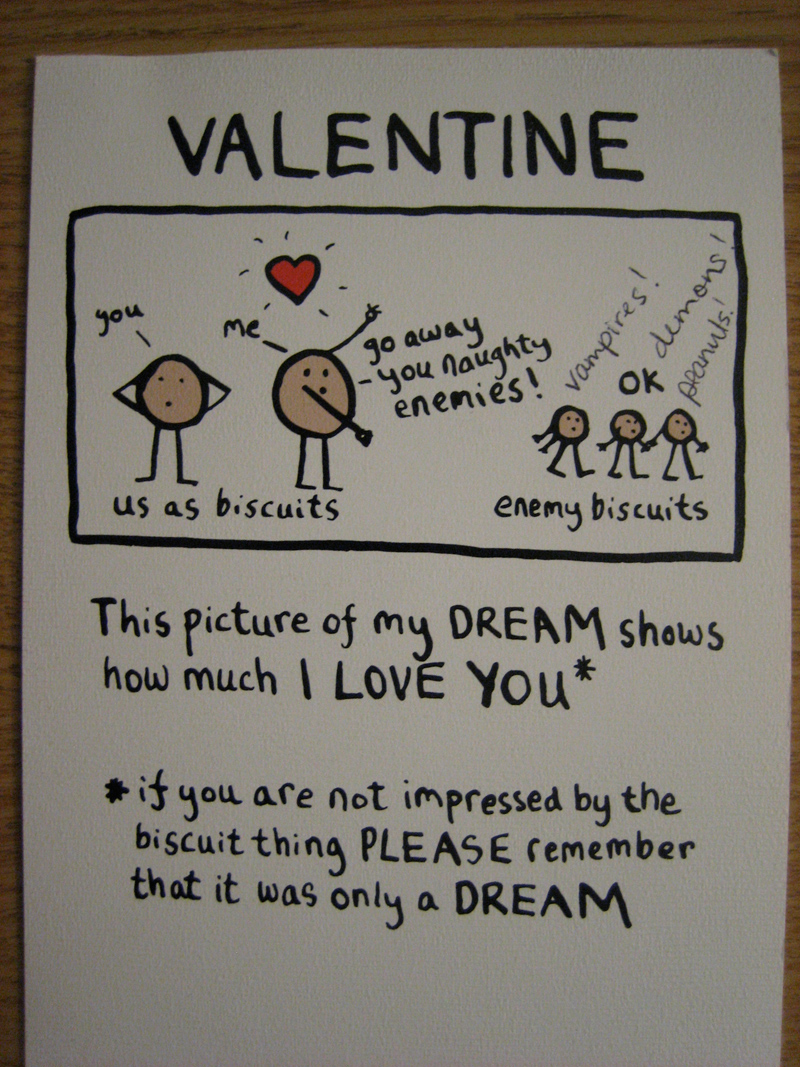 VALENTINE
you
me
go away
you naughty
enemies!
vampires!
demons!
peanuts!
OK
us as biscuits
enemy biscuits
This picture of my DREAM shows
how much I LOVE YOU*
*if you are not impressed by the
biscuit thing PLEASE remember
that it was only a DREAM